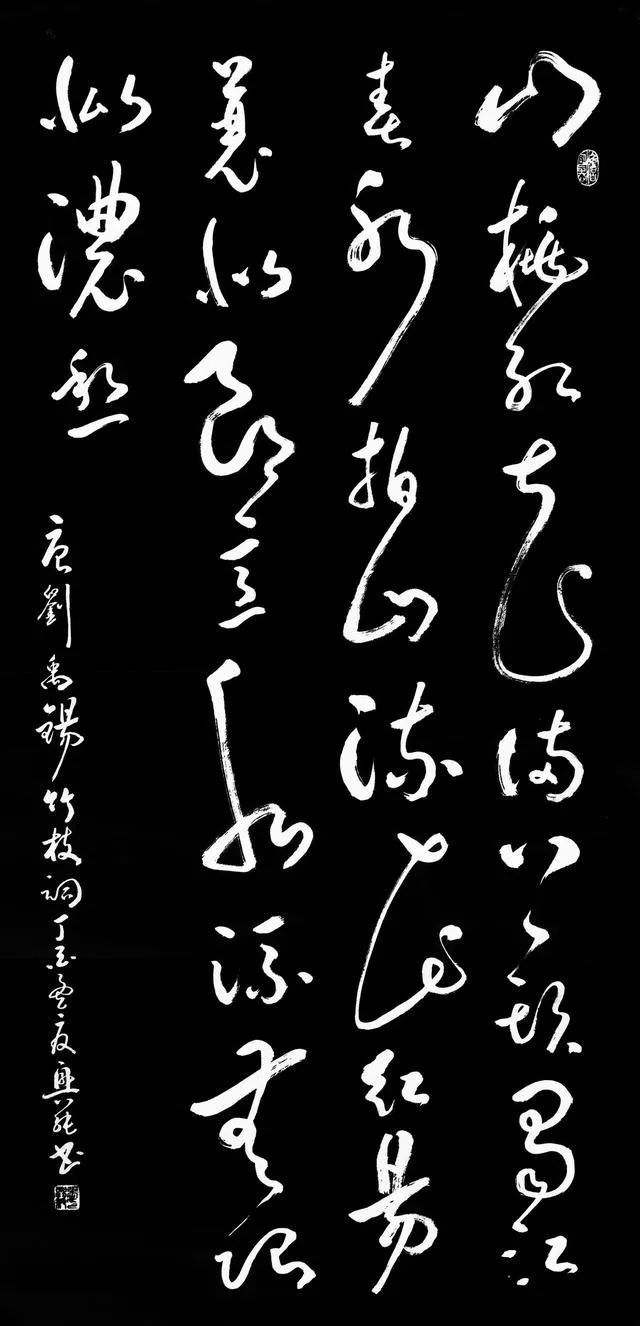 山桃紅花滿上頭蜀江
春水拍山流花紅易
衰似郎意水流無限
似濃愁
唐劉禹錫竹枝詞丁酉孟夏興書